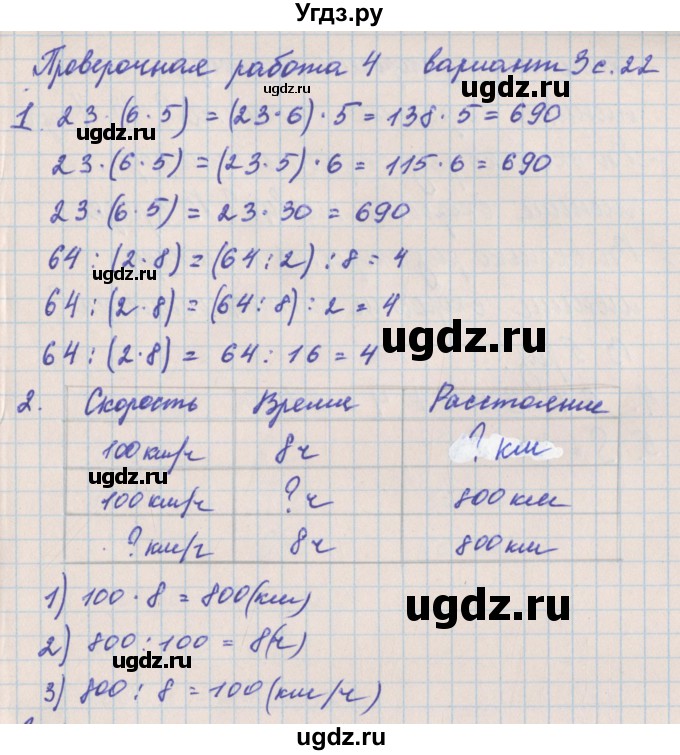 Угдз.ру
Проверочная работа 4 вариант 3 с. 22
1. 23·(6·5) = (23·6)·5 = 138·5 = 690
23·(6·5) = (23·5)·6 = 115·6 = 690
23·(6·5) = 23·30 = 690
64:(2·8) = (64:2):8 = 4
64:(2·8) = (64:8):2 = 4
64:(2·8) = 64:16 = 4
2. Скорость Время Расстояние
100 км/ч 8 ч ? км
100 км/ч ? ч 800 км
? км/ч 8 ч 800 км
1) 100·8 = 800 (км)
2) 800:100 = 8 (ч)
3) 800:8 = 100 (км/ч)
ugdz.ru
ugdz.ru
ugdz.ru
ugdz.ru
ugdz.ru
ugdz.ru
ugdz.ru
ugdz.ru
ugdz.ru
ugdz.ru